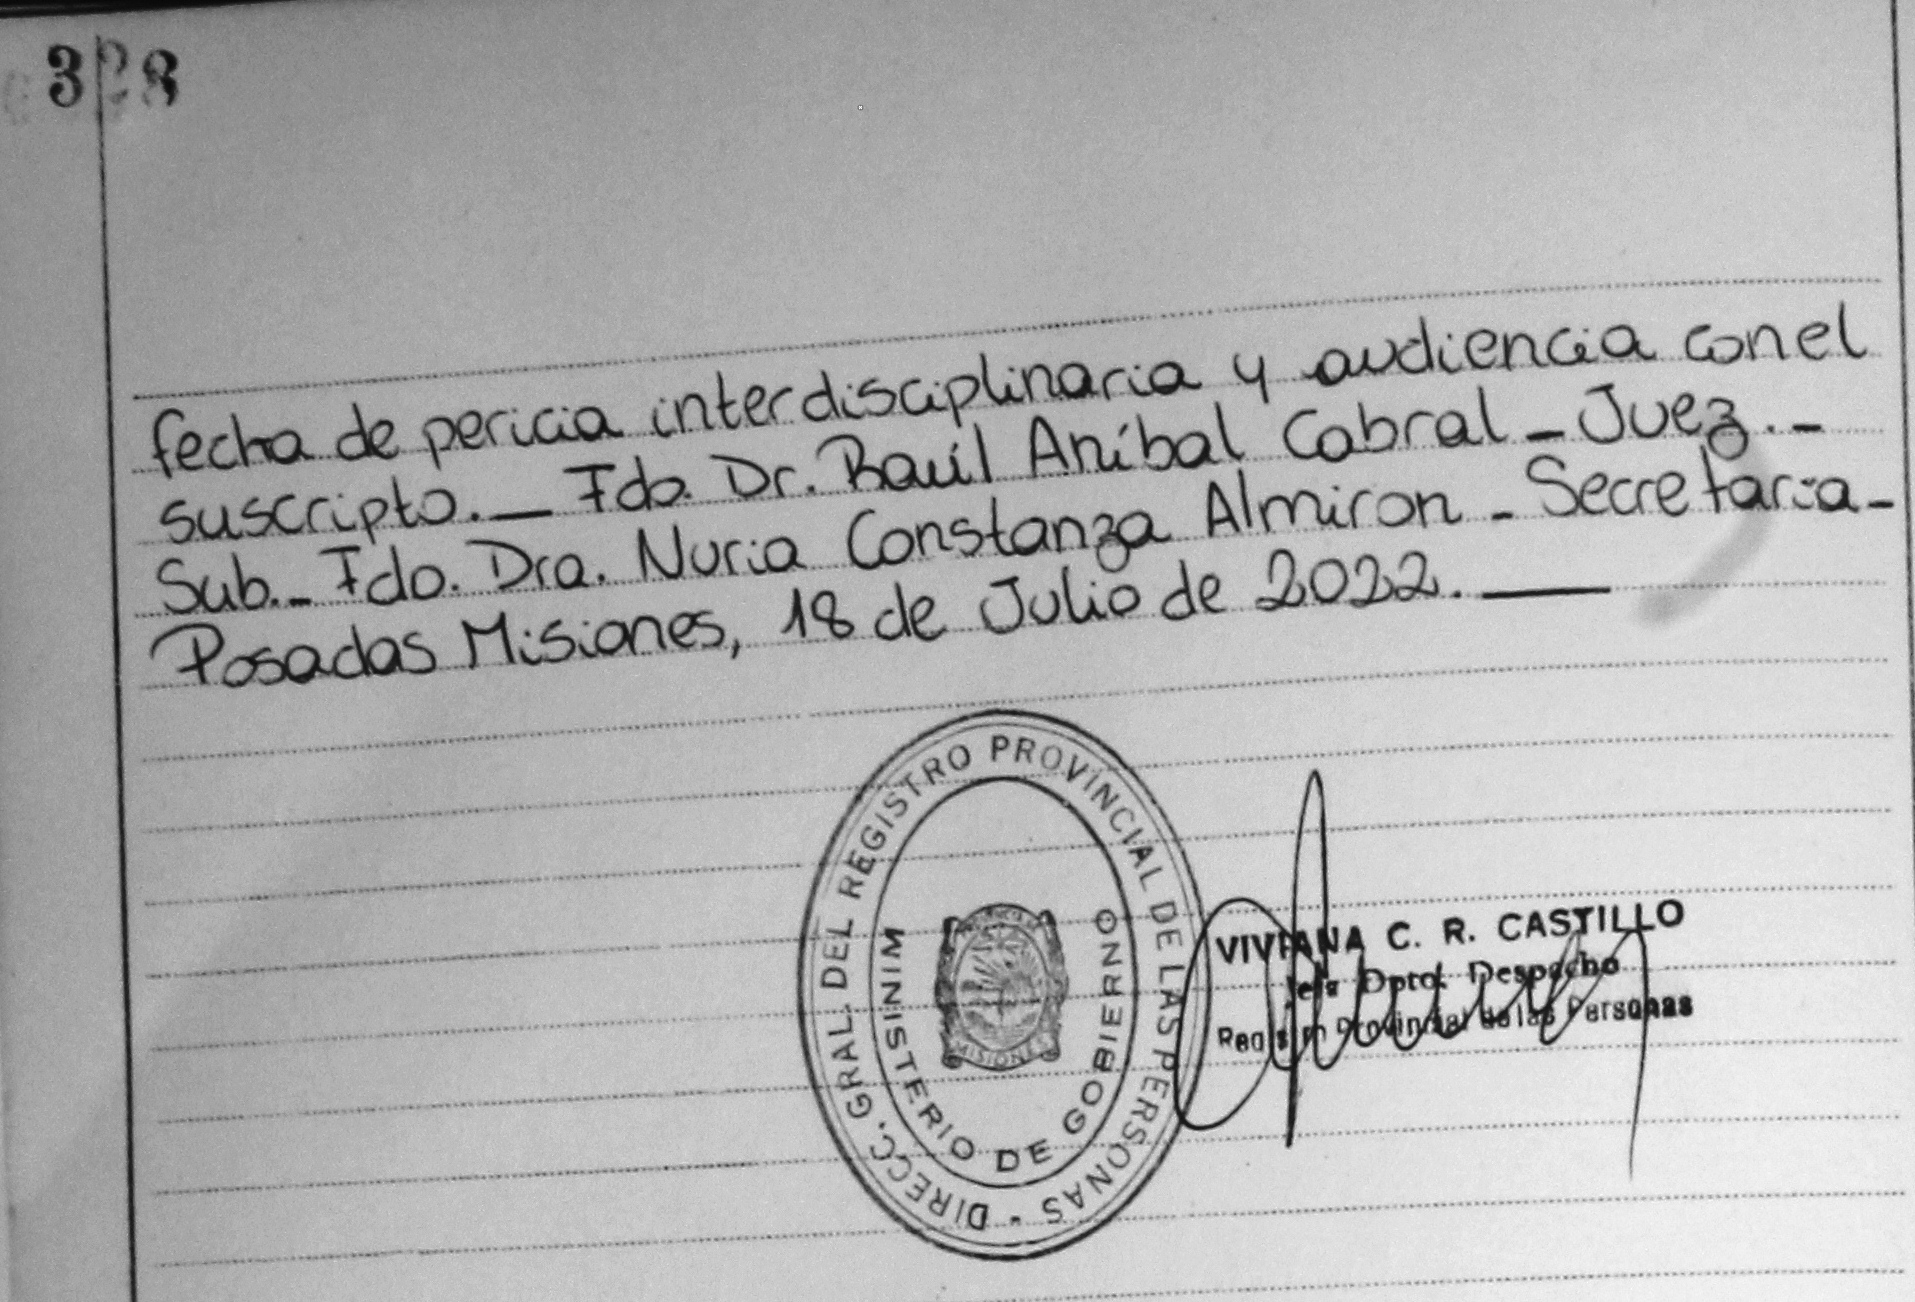 fecha de pericia interdisciplinaria y audiencia con el
suscripto._ Fdo. Dr. Raúl Aníbal Cabral _ Juez._
Sub._ Fdo. Dra. Nuria Constanza Almiron _ Secretaria_
Posadas Misiones, 18 de Julio de 2022.___
DIRECC. GRAL. DEL REGISTRO PROVINCIAL DE LAS PERSONAS -
MINISTERIO DE GOBIERNO
MISIONES
VIVIANA C. R. CASTILLO
Jefa Dpto. Despacho
Provincial de las Personas